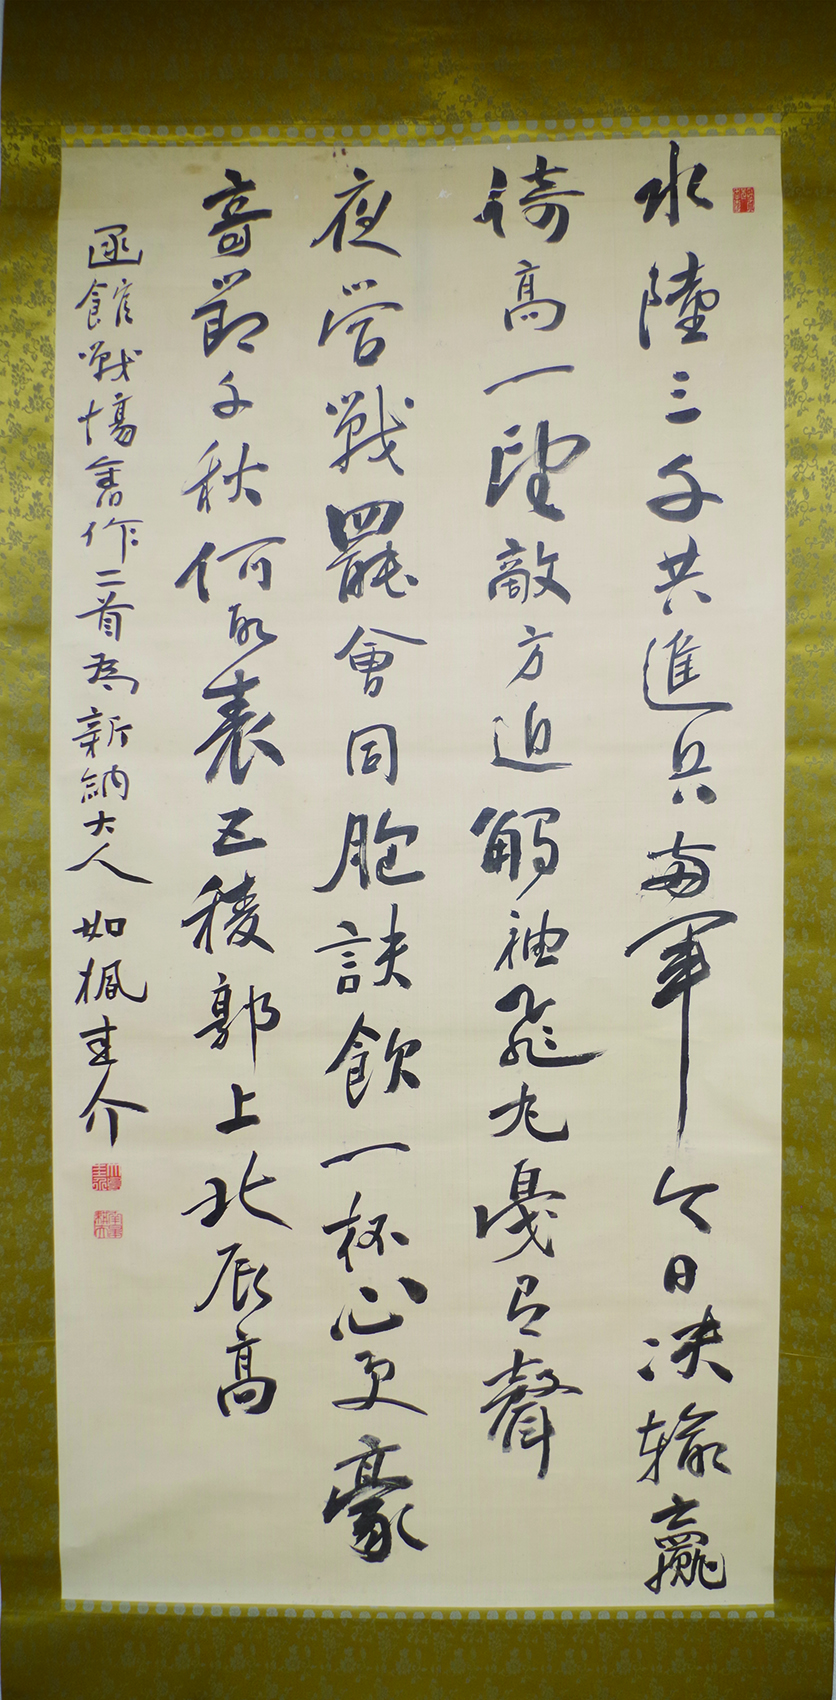 水陸三千共進兵両軍今日決輸贏
倚高一望敵方迫觸袖飛丸戞有聲
夜営戦罷會同胞訣飲一杯心更豪
奇節千秋何所表五稜郭上北辰高
函館戦場舊作二首為新納大人 如楓圭介